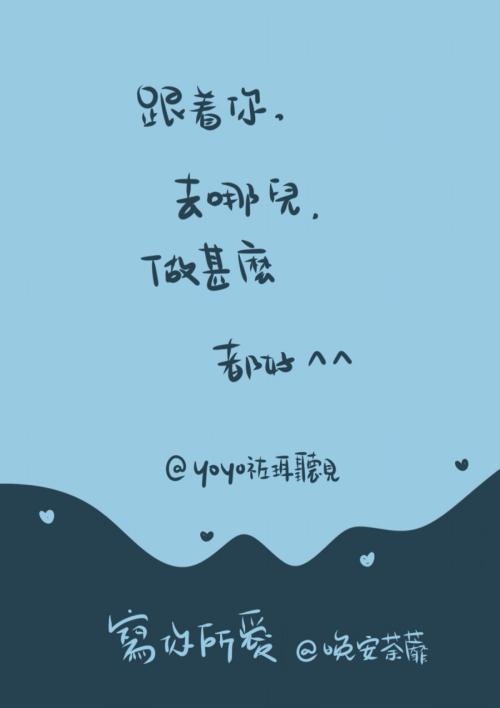 跟着你，
去哪兒，
做甚麼
都好^^
@yoyo祐珥聽見
寫你所愛 @晚安荼蘼